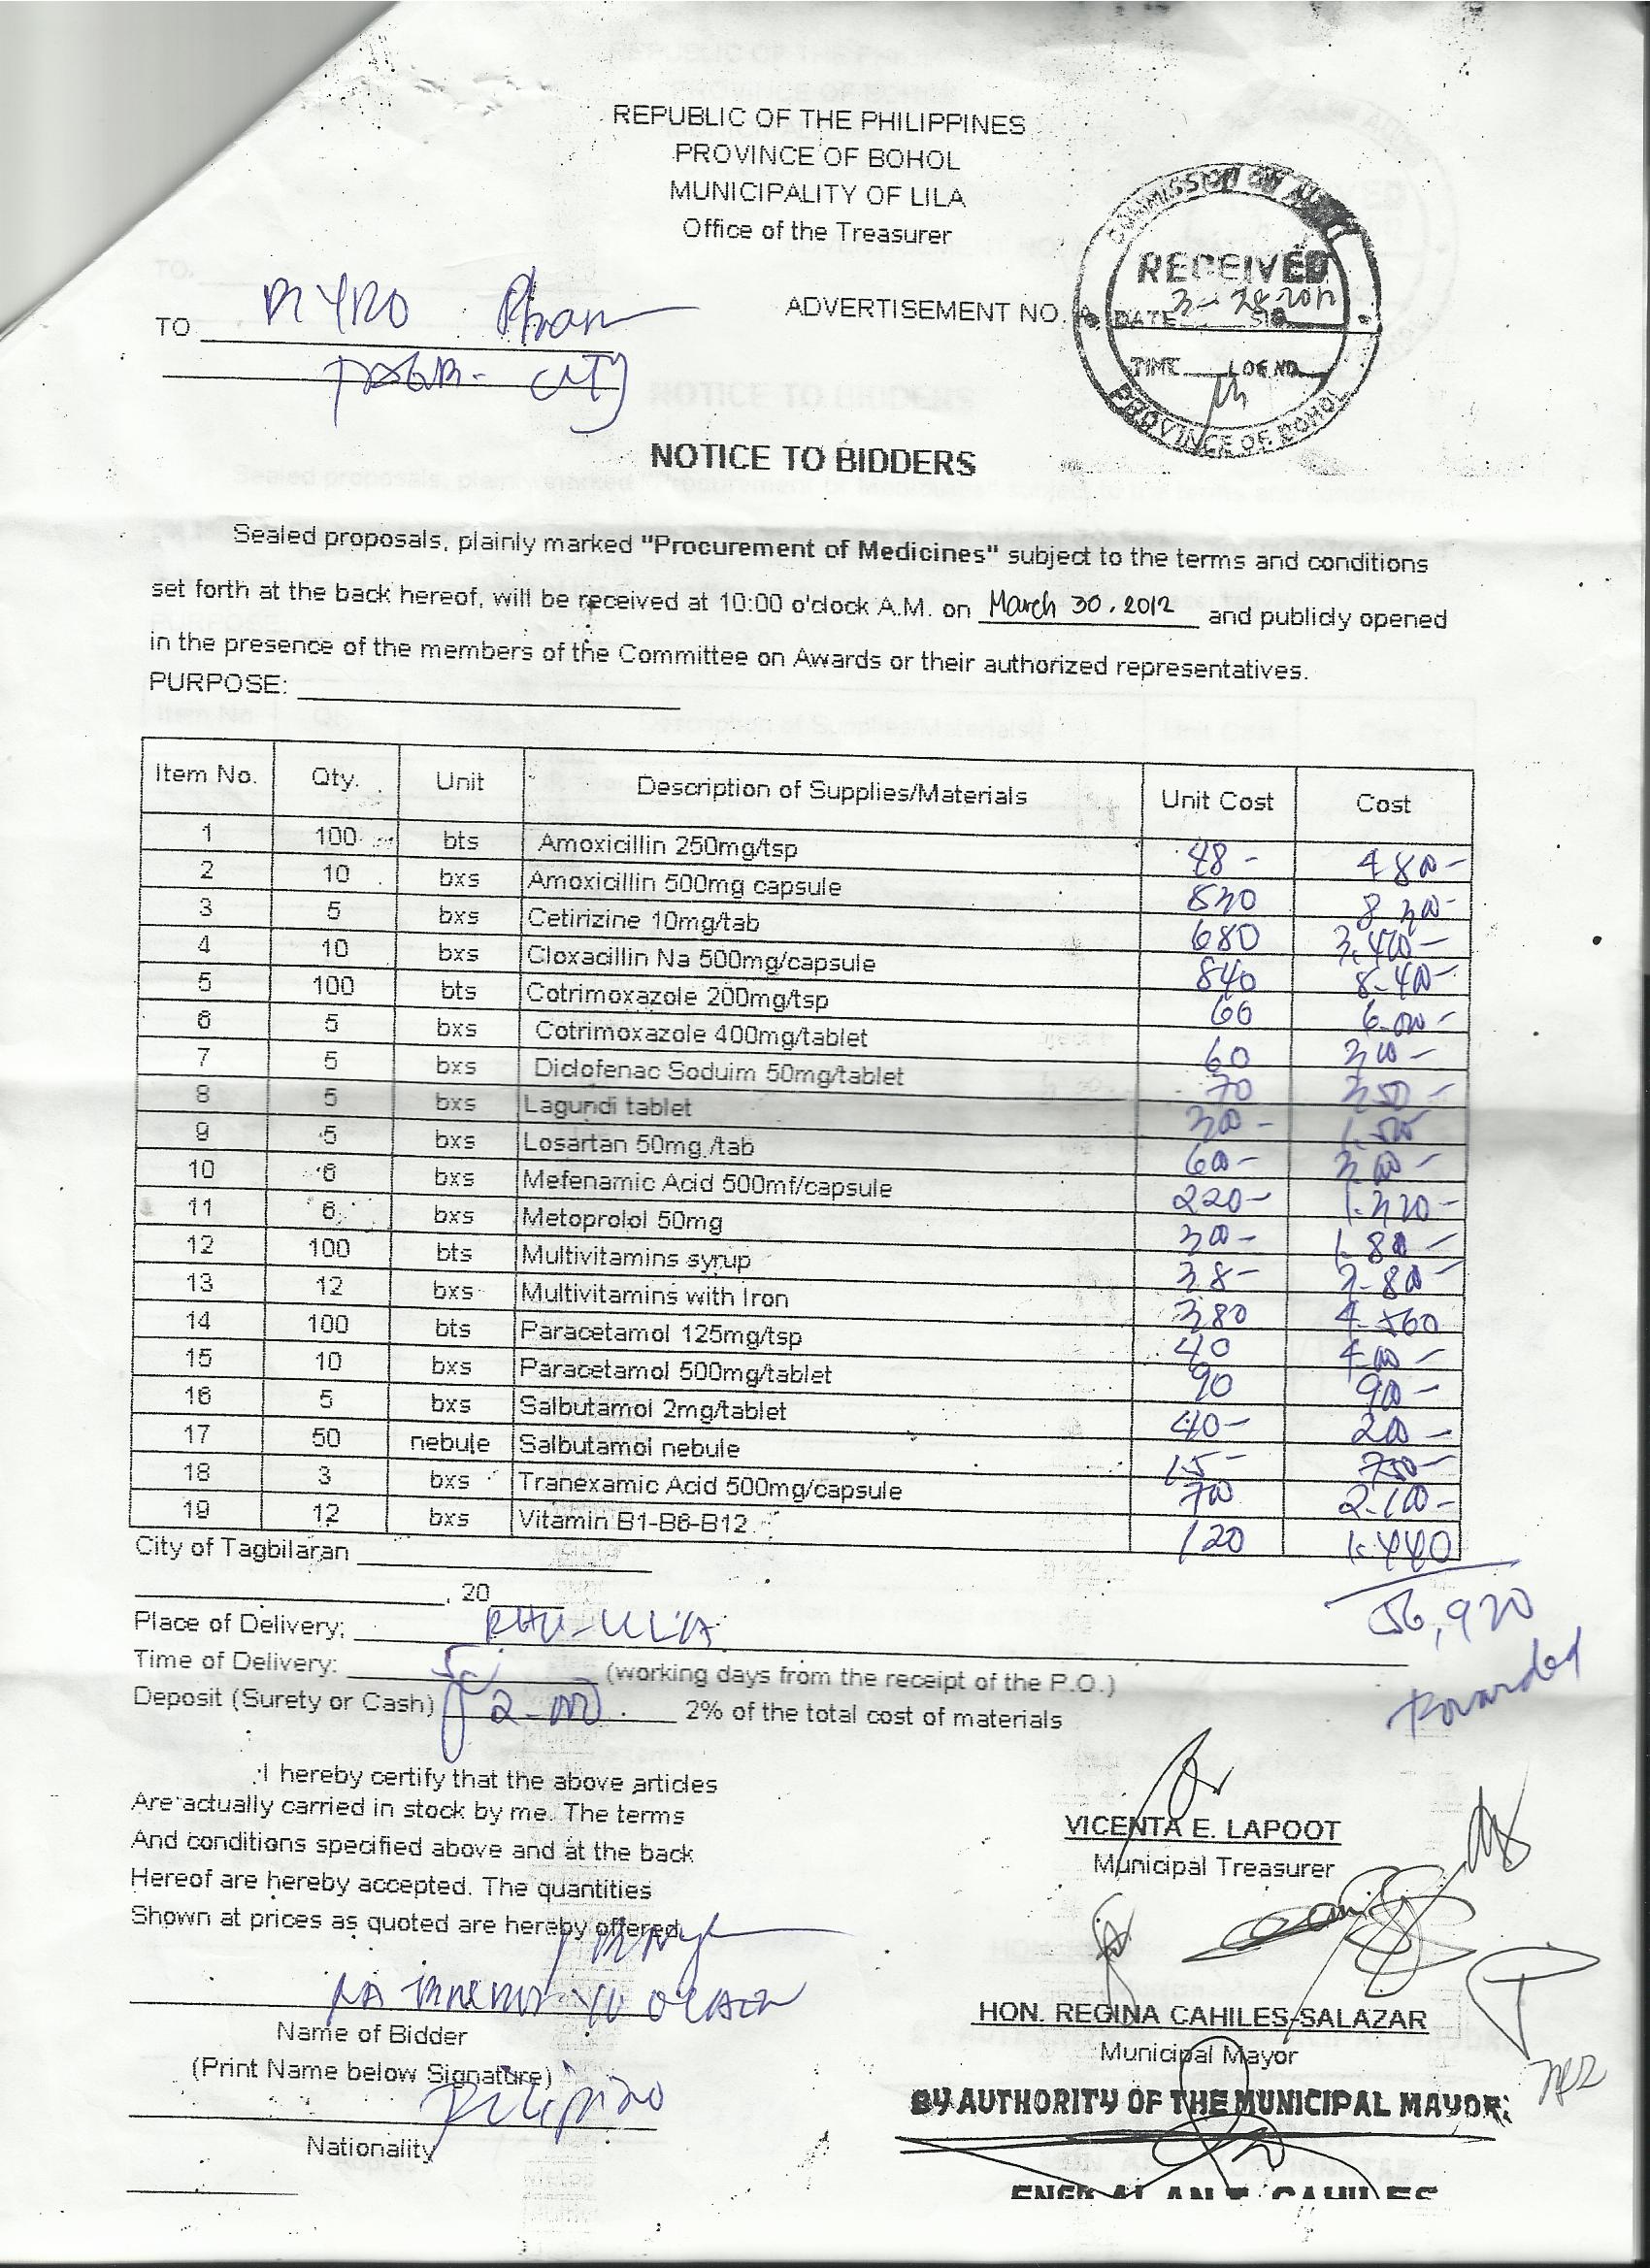 REPUBLIC OF THE PHILIPPINES
PROVINCE OF BOHOL
MUNICIPALITY OF LILA
Office of the Treasurer
COMMISSION ON AUDIT
RECEIVED
DATE 3-28-2012 SIG.
TIME LOG NO.
PROVINCE OF BOHOL
ADVERTISEMENT NO.
TO
CITY
NOTICE TO BIDDERS
Sealed proposals, plainly marked "Procurement of Medicines" subject to the terms and conditions
set forth at the back hereof, will be received at 10:00 o'clock A.M. on March 30, 2012 and publicly opened
in the presence of the members of the Committee on Awards or their authorized representatives.
PURPOSE:
Item No. Qty. Unit Description of Supplies/Materials Unit Cost Cost
1 100 bts Amoxicillin 250mg/tsp 48- 4800-
2 10 bxs Amoxicillin 500mg capsule 830 8300-
3 5 bxs Cetirizine 10mg/tab 680 3.400-
4 10 bxs Cloxacillin Na 500mg/capsule 840 8-400-
5 100 bts Cotrimoxazole 200mg/tsp 60 6-000-
6 5 bxs Cotrimoxazole 400mg/tablet 60 300-
7 5 bxs Diclofenac Soduim 50mg/tablet 70 350-
8 5 bxs Lagundi tablet 300- 1.500
9 5 bxs Losartan 50mg./tab 600- 3.000-
10 6 bxs Mefenamic Acid 500mf/capsule 220- 1.320-
11 6 bxs Metoprolol 50mg 300- 1.800-
12 100 bts Multivitamins syrup 38- 3-800-
13 12 bxs Multivitamins with Iron 380 4-560
14 100 bts Paracetamol 125mg/tsp 40 4-000-
15 10 bxs Paracetamol 500mg/tablet 90 900-
16 5 bxs Salbutamol 2mg/tablet 40- 200-
17 50 nebule Salbutamol nebule 15- 750-
18 3 bxs Tranexamic Acid 500mg/capsule 700 2-100-
19 12 bxs Vitamin B1-B6-B12 120 1.440
56,920
City of Tagbilaran
, 20
Place of Delivery: RHU-LILA
Time of Delivery: (working days from the receipt of the P.O.)
Deposit (Surety or Cash) 2-000 2% of the total cost of materials
I hereby certify that the above articles
Are actually carried in stock by me. The terms
And conditions specified above and at the back
Hereof are hereby accepted. The quantities
Shown at prices as quoted are hereby offered.
Name of Bidder
(Print Name below Signature)
Filipino
Nationality
VICENTA E. LAPOOT
Municipal Treasurer
HON. REGINA CAHILES-SALAZAR
Municipal Mayor
BY AUTHORITY OF THE MUNICIPAL MAYOR: